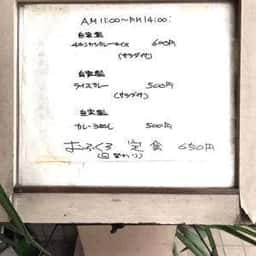 AM11:00~PM14:00:
自家製
チキンカツカレーライス 600円
(サラダ付)
自家製
ライスカレー 500円
(サラダ付)
自家製
カレーうどん 500円
おふくろ 定食 650円